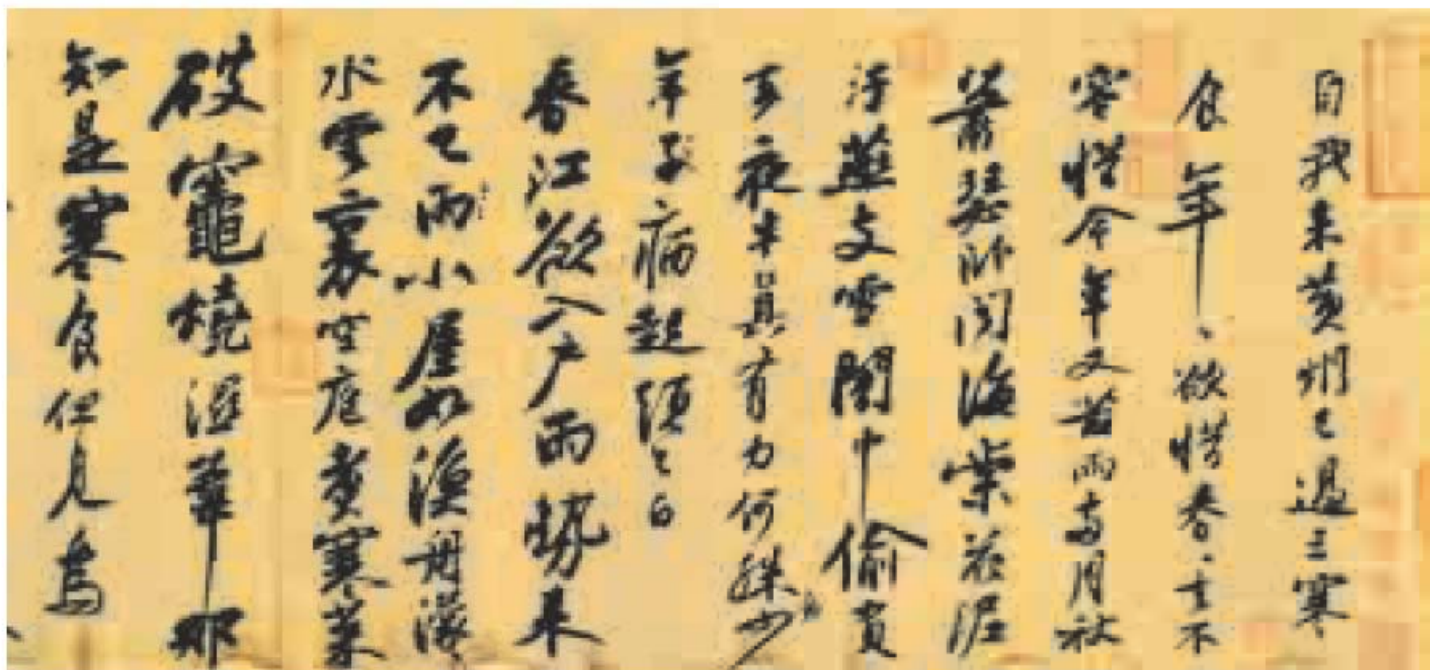 自我来黄州已過三寒
食年、欲惜春、去不
容惜今年又苦雨兩月秋
蕭瑟卧聞海棠花泥
汙燕支雪闇中偷負
去夜半真有力何殊少
年子病起須已白
春江欲入户雨勢来
不已雨小屋如漁舟濛
水雲裏空庖煮寒菜
破竈燒濕葦那
知是寒食但見烏